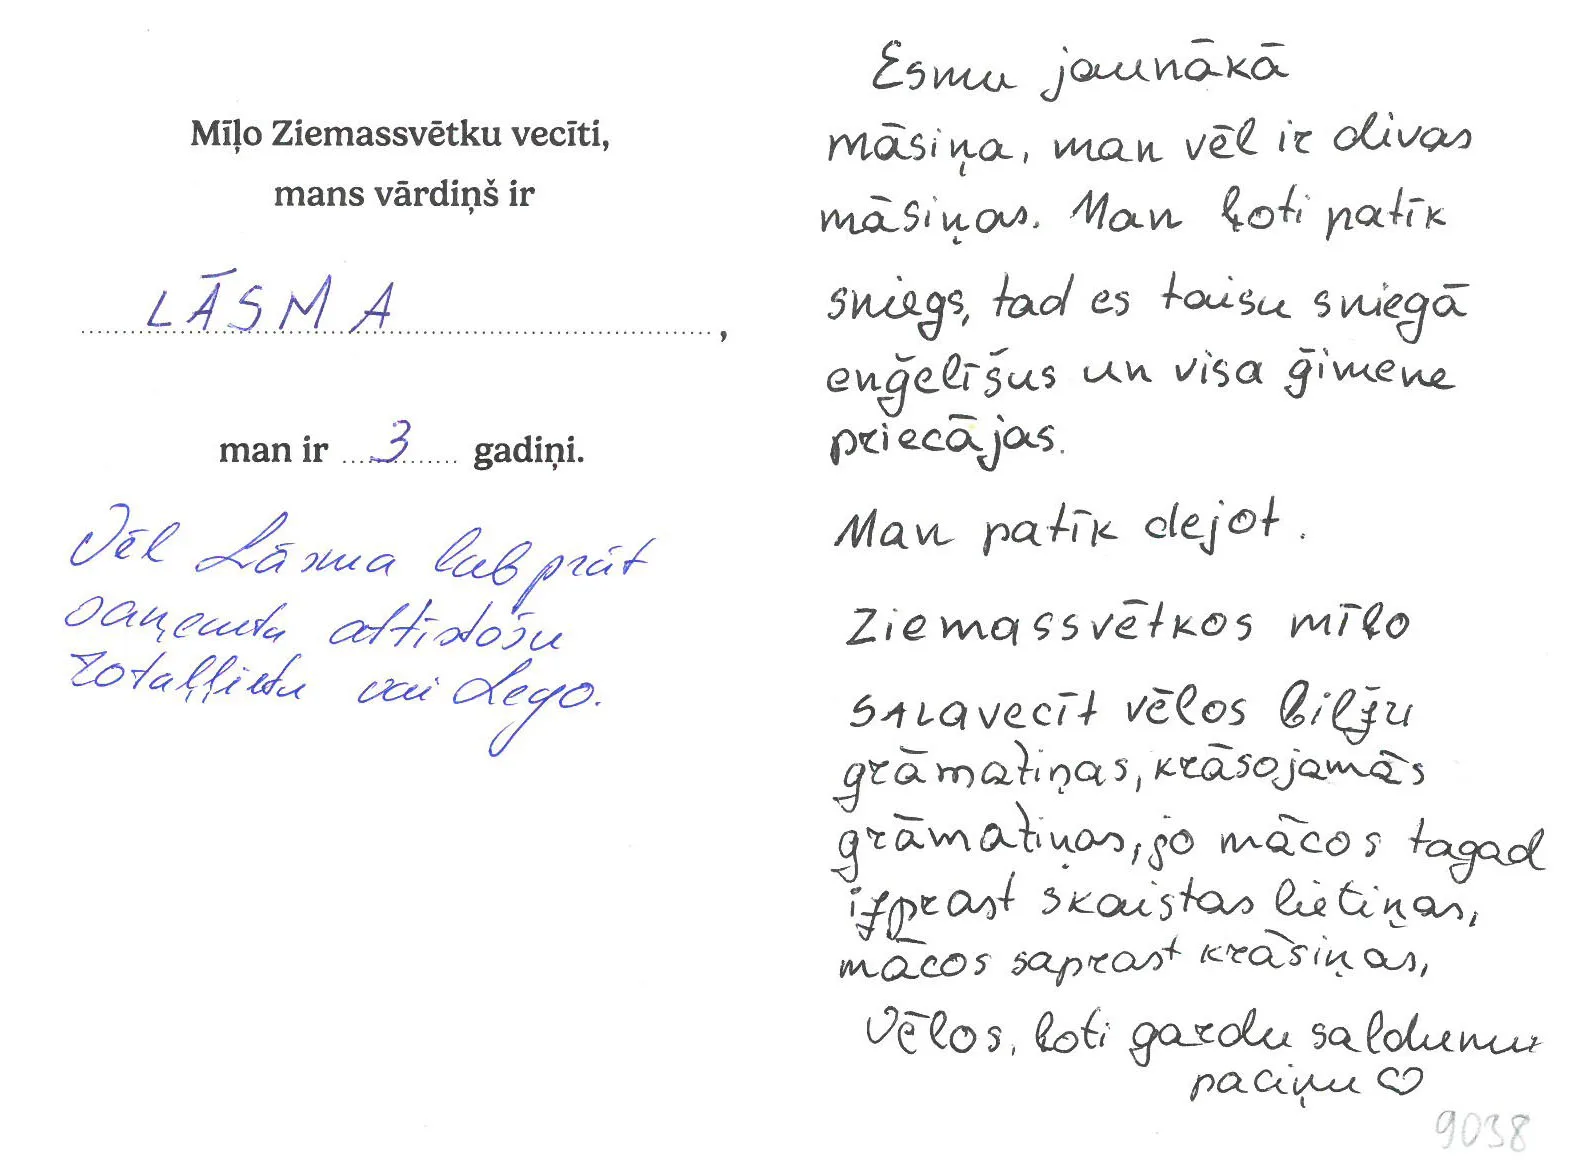 Mīļo Ziemassvētku vecīti,
mans vārdiņš ir
LĀSMA,
man ir 3 gadiņi.
Vēl Lāsma labprāt
saņemtu attīstošu
rotaļļietu vai Lego.
Esmu jaunākā
māsiņa, man vēl ir divas
māsiņas. Man ļoti patīk
sniegs, tad es taisu sniegā
enģelīšus un visa ģimene
priecājas.
Man patīk dejot.
Ziemassvētkos mīļo
SALAVECĪT vēlos bilžu
grāmatiņas, krāsojamās
grāmatiņas, jo mācos tagad
izprast skaistas lietiņas,
mācos saprast krāsiņas,
Vēlos, ļoti gardu saldumu
paciņu ♡
9038